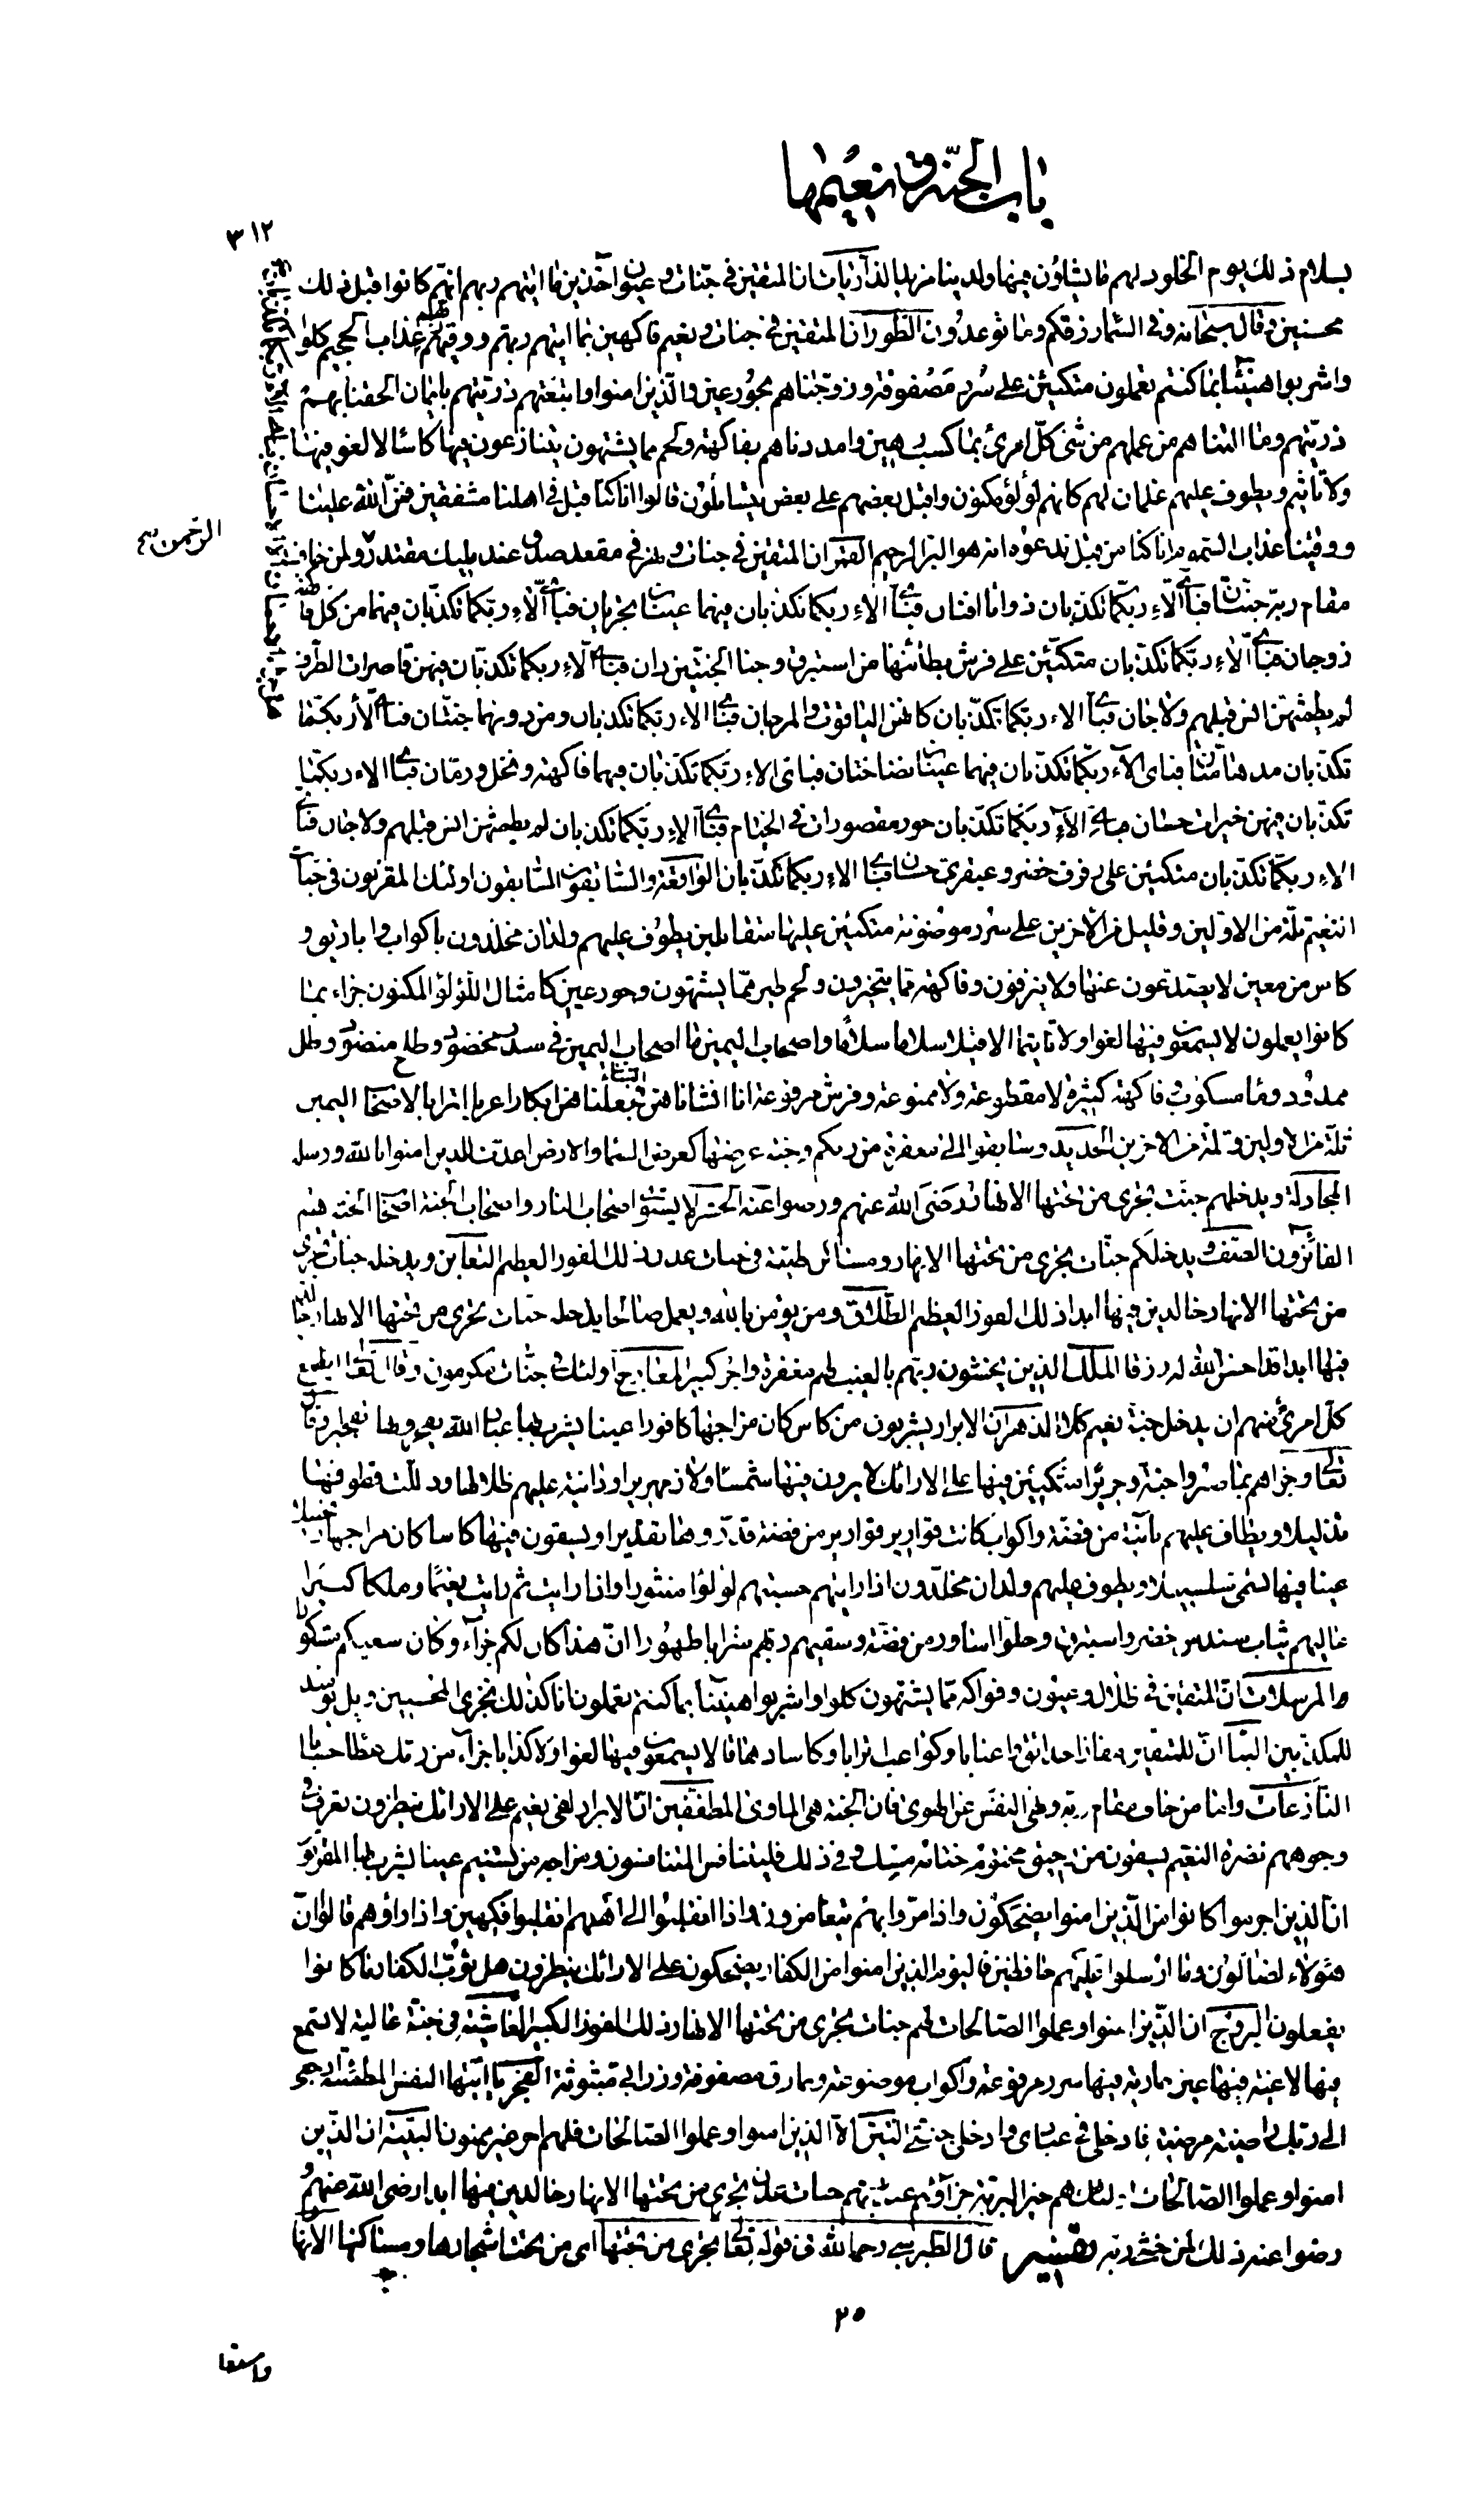 باب الجنة و نعيمها
٣١٢
بسلام ذلك يوم الخلود لهم ما يشاؤن فيها ولدينا مزيد الذاريات ان المتقين في جنات وعيون اخذين ما اتيهم ربهم انهم كانوا قبل ذلك
محسنين وقال سبحانه وفي السماء رزقكم وما توعدون الطور ان المتقين في جنات ونعيم فاكهين بما اتيهم ربهم ووقيهم ربهم عذاب الجحيم كلوا
واشربوا هنيئا بما كنتم تعملون متكئين على سرر مصفوفة وزوجناهم بحور عين والذين امنوا واتبعتهم ذريتهم بايمان الحقنا بهم
ذريتهم وما التناهم من عملهم من شئ كل امرئ بما كسب رهين وامددناهم بفاكهة ولحم مما يشتهون يتنازعون فيها كاسا لا لغو فيها
ولا تاثيم ويطوف عليهم غلمان لهم كانهم لؤلؤ مكنون واقبل بعضهم على بعض يتسائلون قالوا انا كنا قبل في اهلنا مشفقين فمن الله علينا
ووقينا عذاب السموم انا كنا من قبل ندعوه انه هو البر الرحيم القمر ان المتقين في جنات ونهر في مقعد صدق عند مليك مقتدر ولمن خاف
الرحمن
مقام ربه جنتان فباي الاء ربكما تكذبان ذواتا افنان فباي الاء ربكما تكذبان فيهما عينان تجريان فباي الاء ربكما تكذبان فيهما من كل فاكهة
زوجان فباي الاء ربكما تكذبان متكئين على فرش بطائنها من استبرق وجنا الجنتين دان فباي الاء ربكما تكذبان فيهن قاصرات الطرف
لم يطمثهن انس قبلهم ولا جان فباي الاء ربكما تكذبان كانهن الياقوت والمرجان فباي الاء ربكما تكذبان ومن دونهما جنتان فباي الاء ربكما
تكذبان مدهامتان فباي الاء ربكما تكذبان فيهما عينان نضاختان فباي الاء ربكما تكذبان فيهما فاكهة ونخل ورمان فباي الاء ربكما
تكذبان فيهن خيرات حسان فباي الاء ربكما تكذبان حور مقصورات في الخيام فباي الاء ربكما تكذبان لم يطمثهن انس قبلهم ولا جان فباي
الاء ربكما تكذبان متكئين على رفرف خضر وعبقري حسان فباي الاء ربكما تكذبان الواقعة والسابقون السابقون اولئك المقربون في جنات
النعيم ثلة من الاولين وقليل من الاخرين على سرر موضونة متكئين عليها متقابلين يطوف عليهم ولدان مخلدون باكواب واباريق و
كاس من معين لا يصدعون عنها ولا ينزفون وفاكهة مما يتخيرون ولحم طير مما يشتهون وحور عين كامثال اللؤلؤ المكنون جزاء بما
كانوا يعملون لا يسمعون فيها لغوا ولا تاثيما الا قيلا سلاما سلاما واصحاب اليمين ما اصحاب اليمين في سدر مخضود وطلح منضود وظل
ممدود وماء مسكوب وفاكهة كثيرة لا مقطوعة ولا ممنوعة وفرش مرفوعة انا انشاناهن انشاء فجعلناهن ابكارا عربا اترابا لاصحاب اليمين
ثلة من الاولين وثلة من الاخرين الحديد وسابقوا الى مغفرة من ربكم وجنة عرضها كعرض السماء والارض اعدت للذين امنوا بالله ورسله
المجادلة ويدخلهم جنت تجري من تحتها الانهار رضي الله عنهم ورضوا عنه الحشر لا يستوي اصحاب النار واصحاب الجنة اصحاب الجنة هم
الفائزون الصف ويدخلكم جنات تجري من تحتها الانهار ومساكن طيبة في جنات عدن ذلك الفوز العظيم التغابن ويدخله جنات تجري
من تحتها الانهار خالدين فيها ابدا ذلك الفوز العظيم الطلاق ومن يؤمن بالله ويعمل صالحا يدخله جنات تجري من تحتها الانهار خالدين
فيها ابدا قد احسن الله له رزقا الملك ان الذين يخشون ربهم بالغيب لهم مغفرة واجر كبير المعارج اولئك في جنات مكرمون وقال تعالى ايطمع
كل امرئ منهم ان يدخل جنة نعيم كلا الدهر ان الابرار يشربون من كاس كان مزاجها كافورا عينا يشرب بها عباد الله يفجرونها تفجيرا وقال
تعالى وجزاهم بما صبروا جنة وحريرا متكئين فيها على الارائك لا يرون فيها شمسا ولا زمهريرا ودانية عليهم ظلالها وذللت قطوفها
تذليلا ويطاف عليهم بانية من فضة واكواب كانت قوارير قوارير من فضة قدروها تقديرا ويسقون فيها كاسا كان مزاجها زنجبيلا
عينا فيها تسمى سلسبيلا ويطوف عليهم ولدان مخلدون اذا رايتهم حسبتهم لؤلؤا منثورا واذا رايت ثم رايت نعيما وملكا كبيرا
عاليهم ثياب سندس خضر واستبرق وحلوا اساور من فضة وسقيهم ربهم شرابا طهورا ان هذا كان لكم جزاء وكان سعيكم مشكورا
والمرسلات ان المتقين في ظلال وعيون وفواكه مما يشتهون كلوا واشربوا هنيئا بما كنتم تعملون انا كذلك نجزي المحسنين ويل يومئذ
للمكذبين النبأ ان للمتقين مفازا حدائق واعنابا وكواعب اترابا وكاسا دهاقا لا يسمعون فيها لغوا ولا كذابا جزاء من ربك عطاء حسابا
النازعات واما من خاف مقام ربه ونهى النفس عن الهوى فان الجنة هي الماوى المطففين ان الابرار لفي نعيم على الارائك ينظرون تعرف في
وجوههم نضرة النعيم يسقون من رحيق مختوم ختامه مسك وفي ذلك فليتنافس المتنافسون ومزاجه من تسنيم عينا يشرب بها المقربون
ان الذين اجرموا كانوا من الذين امنوا يضحكون واذا مروا بهم يتغامزون واذا انقلبوا الى اهلهم انقلبوا فكهين واذا راوهم قالوا ان
هؤلاء لضالون وما ارسلوا عليهم حافظين فاليوم الذين امنوا من الكفار يضحكون على الارائك ينظرون هل ثوب الكفار ما كانوا
يفعلون البروج ان الذين امنوا وعملوا الصالحات لهم جنات تجري من تحتها الانهار ذلك الفوز الكبير الغاشية في جنة عالية لا تسمع
فيها لاغية فيها عين جارية فيها سرر مرفوعة واكواب موضوعة ونمارق مصفوفة وزرابي مبثوثة الفجر يا ايتها النفس المطمئنة ارجعي
الى ربك راضية مرضية فادخلي في عبادي وادخلي جنتي التين الا الذين امنوا وعملوا الصالحات فلهم اجر غير ممنون البينة ان الذين
امنوا وعملوا الصالحات اولئك هم خير البرية جزاؤهم عند ربهم جنات عدن تجري من تحتها الانهار خالدين فيها ابدا رضي الله عنهم و
رضوا عنه ذلك لمن خشي ربه تفسير قال الطبرسي رحمه الله في قوله تعالى تجري من تحتها اي من تحت اشجارها ومساكنها الانهار
٢٥